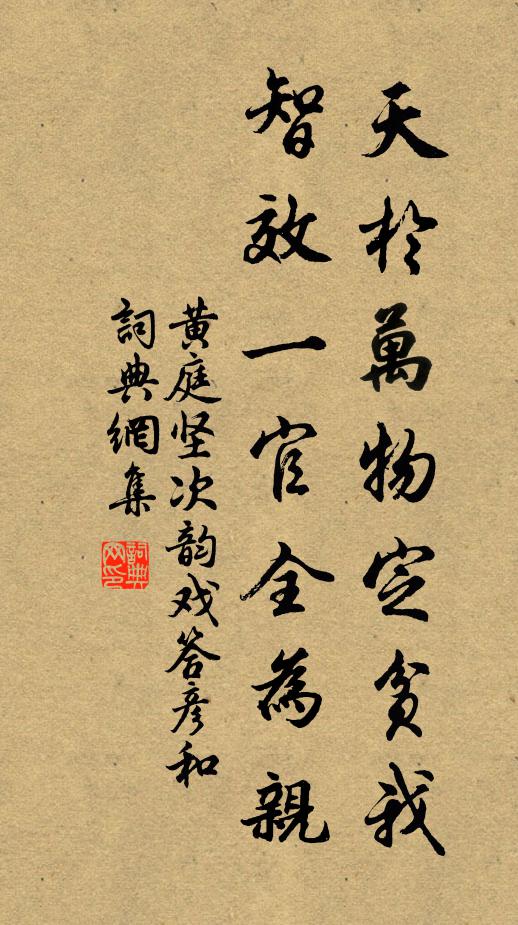 天於萬物定貧我
智效一官全為親
黄庭坚次韵戏答彦和
詞典網集
詞典網印